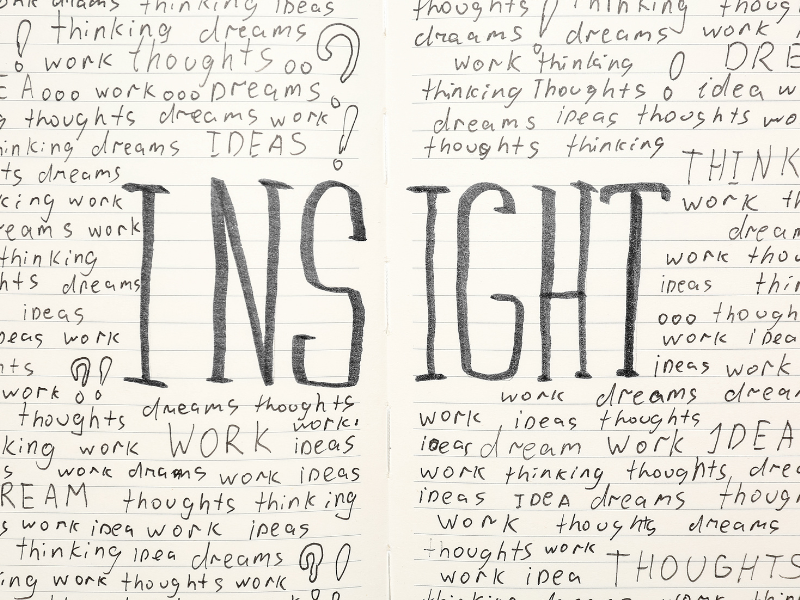 thinking ideas
! thinking dreams
! work thoughts oo?
EA ooo work ooo Dreams
thoughts dreams work
thinking dreams IDEAS !
dreams
king work
dreams work
thinking
dreams
ideas
ideas work
work ?!
thoughts dreams thoughts
work!
king work WORK ideas
work drams work ideas
REAM thoughts thinking
work idea work ideas
thinking idea dreams ?!
work thoughts work
INSIGHT
thoughts ! Thinking
draams dreams work
work thinking DRE
thinking Thoughts o idea w
dreams ideas thoughts wo
thoughts thinking
THINK
work th
dream
work thou
ideas thin
ooo though
work idea
ideas work
work dreams dream
work ideas thoughts
ideas dream work IDEA
work thinking thoughts, drea
ideas IDEA dreams though
work thoughts dreams
thoughts work THOUGHTS
work idea